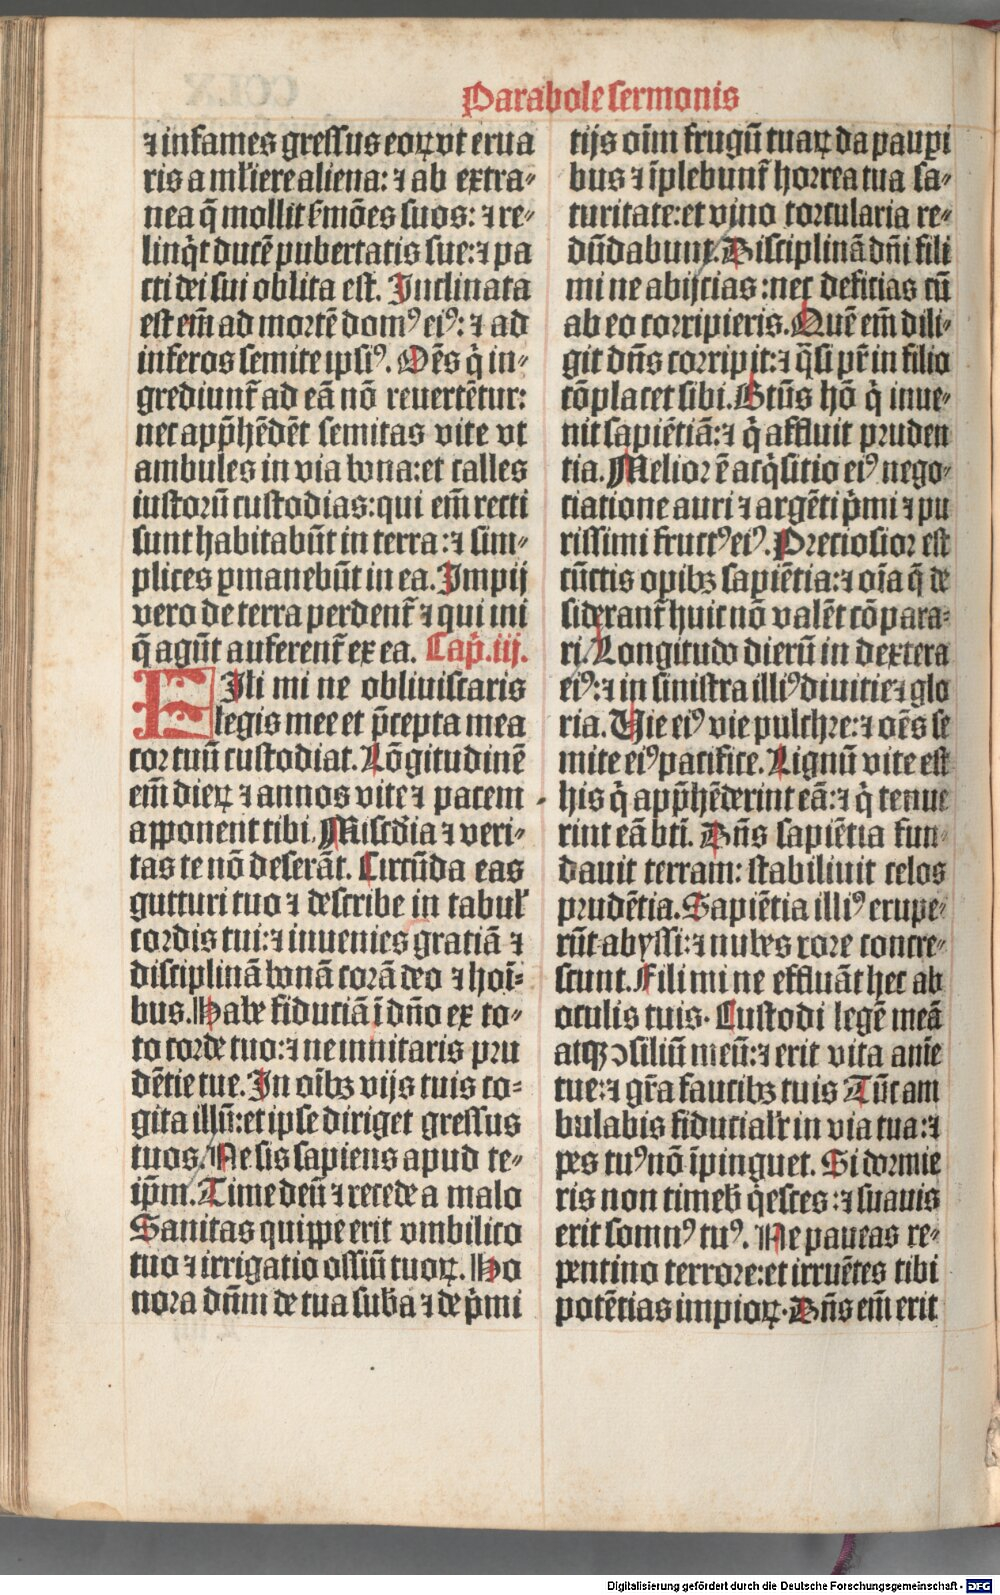 Parabole sermonis
⁊ infames gressus eoꝝ vt erua
ris a mĺiere aliena: ⁊ ab extra-
nea q̄ mollit ẜmões suos: ⁊ re-
linq̇t ducē pubertatis sue: ⁊ pa
cti dei sui oblita est. Inclinata
est em̄ ad mortē domꝰ eiꝰ: ⁊ ad
inferos semite ipsiꝰ. Oēs q̇ in-
grediunt̄ ad eā nō reuertētur:
nec app̄hēdēt semitas vite vt
ambules in via bona: et calles
iustorū custodias: qui em̄ recti
sunt habitabūt in terra: ⁊ sim-
plices ꝑmanebūt in ea. Impij
vero de terra perdent̄ ⁊ qui ini
q̄ agūt auferent̄ ex ea. Cap̄.iij.
FIli mi ne obliuiscaris
legis mee et p̄cepta mea
cor tuū custodiat. Lōgitudinē
em̄ dieꝝ ⁊ annos vite ⁊ pacem
apponent tibi. Misc̄dia ⁊ veri-
tas te nō deserāt. Circūda eas
gutturi tuo ⁊ describe in tabuĺ
cordis tui: ⁊ inuenies gratiā ⁊
disciplinā bonā corā deo ⁊ hoī-
bus. Habe fiduciā ī dño ex to-
to corde tuo: ⁊ ne innitaris pru
dētie tue. In oībꝫ vijs tuis co-
gita illū: et ipse diriget gressus
tuos. Ne sis sapiens apud te-
ip̄m. Time deū ⁊ recede a malo
Sanitas quippe erit vmbilico
tuo ⁊ irrigatio ossiū tuoꝝ. Ho
nora dn̄m de tua sub̄a ⁊ de p̄mi
tijs oīm frugū tuaꝝ da pauꝑi
bus ⁊ īplebunt̄ horrea tua sa-
turitate: et vino torcularia re-
dūdabunt. Disciplinā dñi fili
mi ne abijcias: nec deficias cū
ab eo corripieris. Quē em̄ dili-
git dñs corripit: ⁊ q̄si pr̄ in filio
cōplacet sibi. Btūs hō q̇ inue-
nit sapiētiā: ⁊ q̇ affluit pruden
tia. Melior ē acq̇sitio eiꝰ nego-
ciatione auri ⁊ argēti p̄mi ⁊ pu
rissimi fructꝰ eiꝰ. Preciosior est
cūctis opibꝫ sapiētia: ⁊ oīa q̄ de
siderant̄ huic nō valēt cōpara-
ri. Longitudo dierū in dextera
eiꝰ: ⁊ in sinistra illiꝰ diuitie ⁊ glo
ria. Vie eiꝰ vie pulchre: ⁊ oēs se
mite eiꝰ pacifice. Lignū vite est
his q̇ app̄hēderint eā: ⁊ q̇ tenue
rint eā btī. Dñs sapiētia fun-
dauit terram: stabiliuit celos
prudētia. Sapiētia illiꝰ erupe-
rūt abyssi: ⁊ nubes rore concre-
scunt. Fili mi ne effluāt hec ab
oculis tuis. Custodi legē meā
atqꝫ ↄsiliū meū: ⁊ erit vita anīe
tue: ⁊ gr̄a faucibꝫ tuis Tūc am
bulabis fiducialr̄ in via tua: ⁊
pes tuꝰ nō īpinguet. Si dormie
ris non timeb̄ q̇esces: ⁊ suauis
erit somnꝰ tuꝰ. Ne paueas re-
pentino terrore: et irruētes tibi
potētias impioꝝ. Dñs em̄ erit
Digitalisierung gefördert durch die Deutsche Forschungsgemeinschaft - DFG